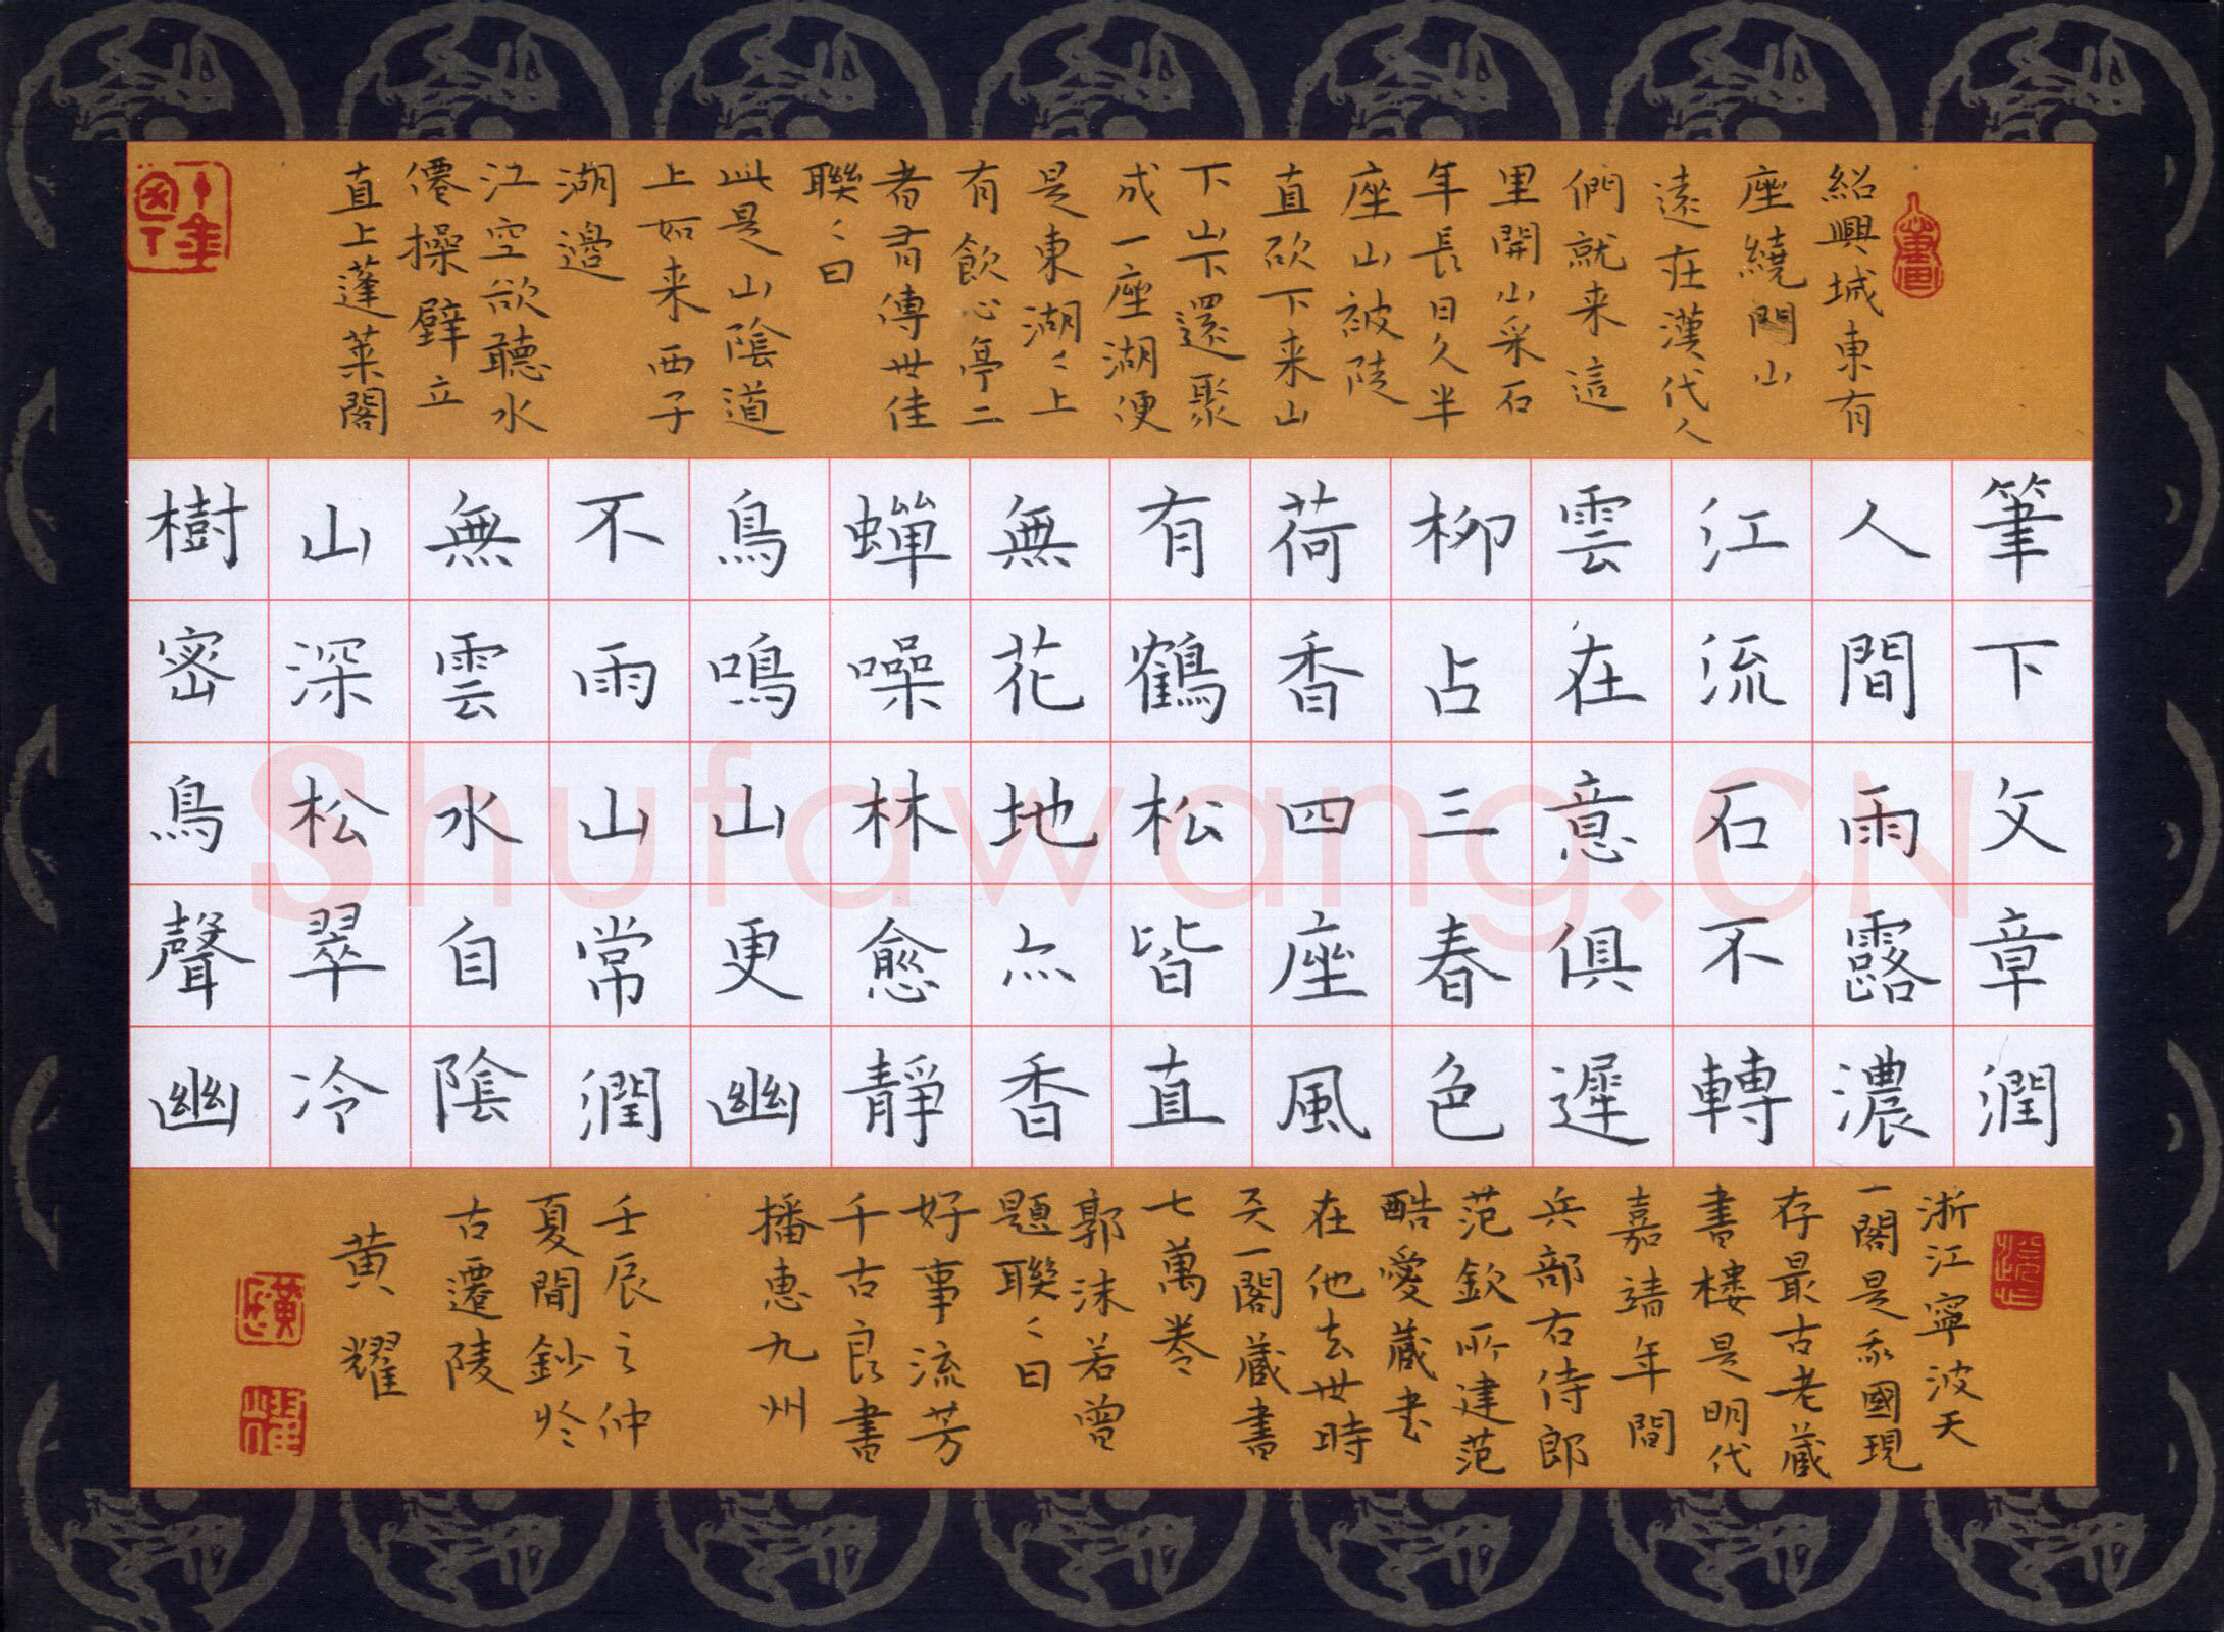 紹興城東有
座繞門山
遠在漢代人
們就来這
里開山采石
年長日久半
座山被陡
直砍下来山
下山下還聚
成一座湖便
是東湖〻上
有飲心亭二
者有傳世佳
聯〻曰
此是山陰道
上如来西子
湖邊
江空欲聽水
僊操壁立
直上蓬莱閣
筆下文章潤
人間雨露濃
江流石不轉
雲在意俱遲
柳占三春色
荷香四座風
有鶴松皆直
無花地亦香
蟬噪林愈靜
鳥鳴山更幽
不雨山常潤
無雲水自陰
山深松翠冷
樹密鳥聲幽
浙江寧波天
一閣是我國現
存最古老藏
書楼是明代
嘉靖年間
兵部右侍郎
范欽所建范
酷愛藏书
在他去世時
天一閣藏書
七萬卷
郭沫若曾
題聯〻曰
好事流芳
千古良書
播惠九州
壬辰之仲
夏間鈔於
古遷陵
黄耀
Shufawang.CN